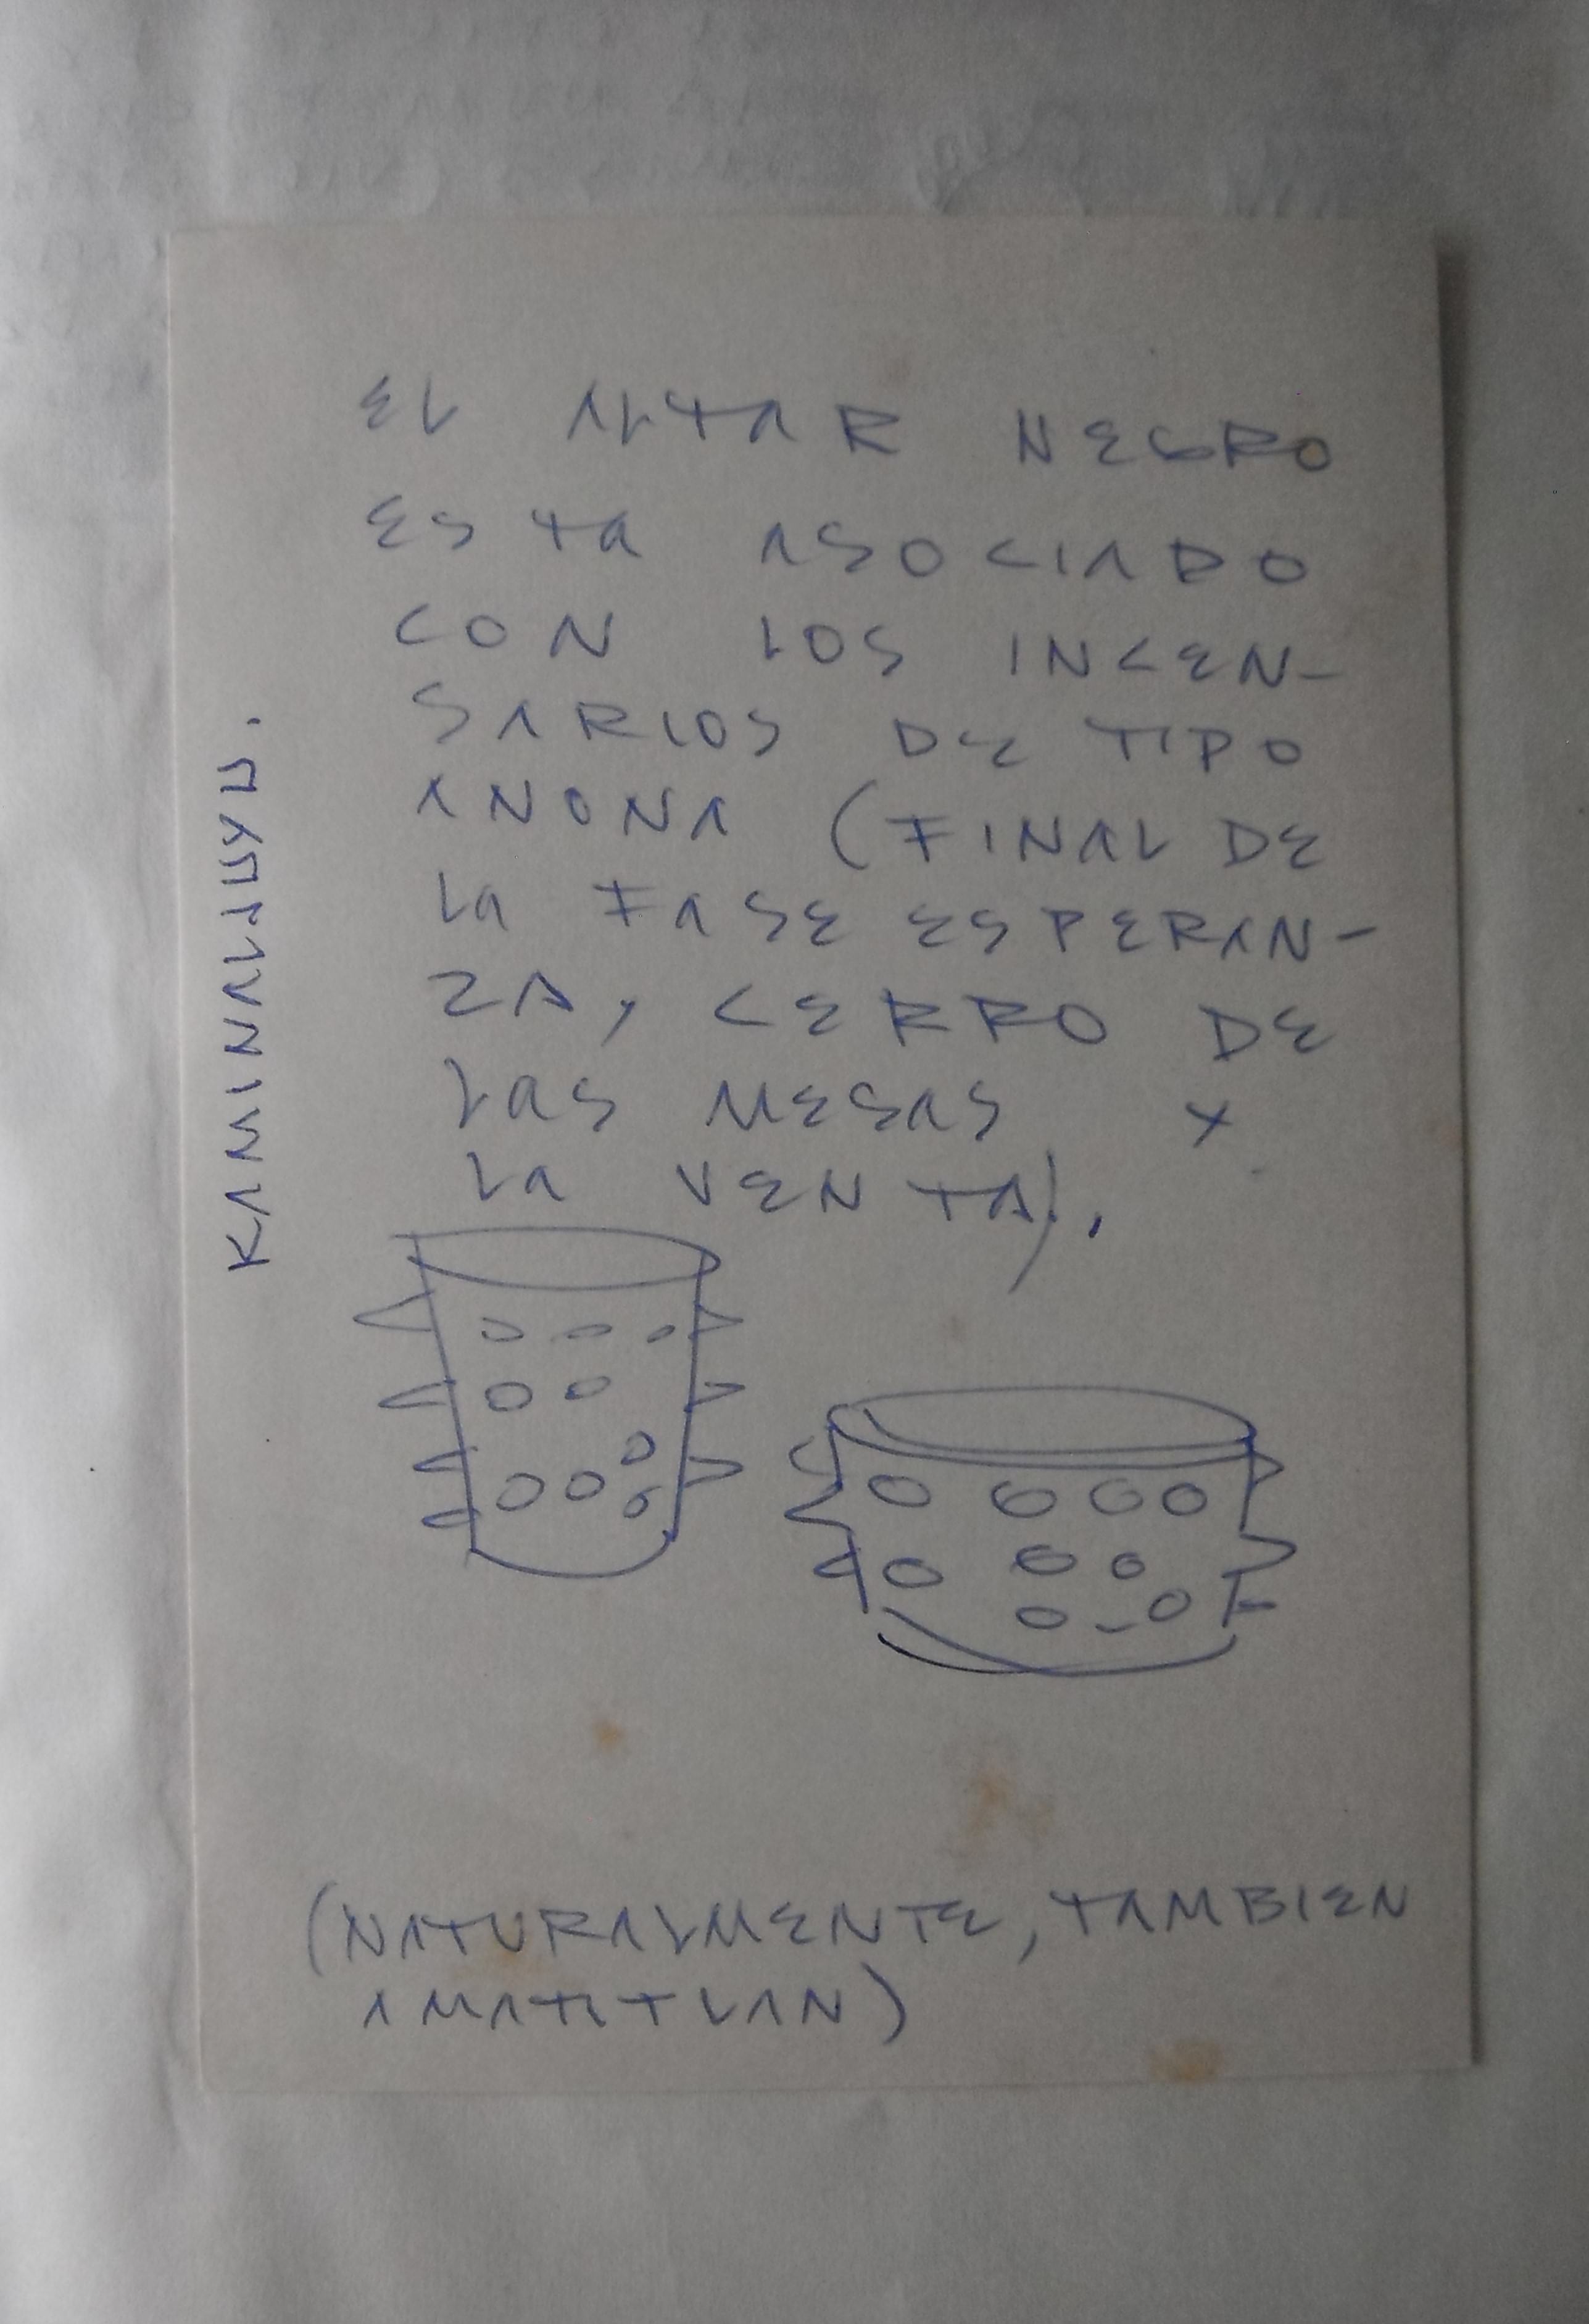 EL ALTAR NEGRO
ESTA ASOCIADO
CON LOS INCEN-
SARIOS DE TIPO
ANONA (FINAL DE
LA FASE ESPERAN-
ZA, CERRO DE
LAS MESAS Y
LA VENTA).
KAMINALJUYU.
(NATURALMENTE, TAMBIEN
AMATITLAN)